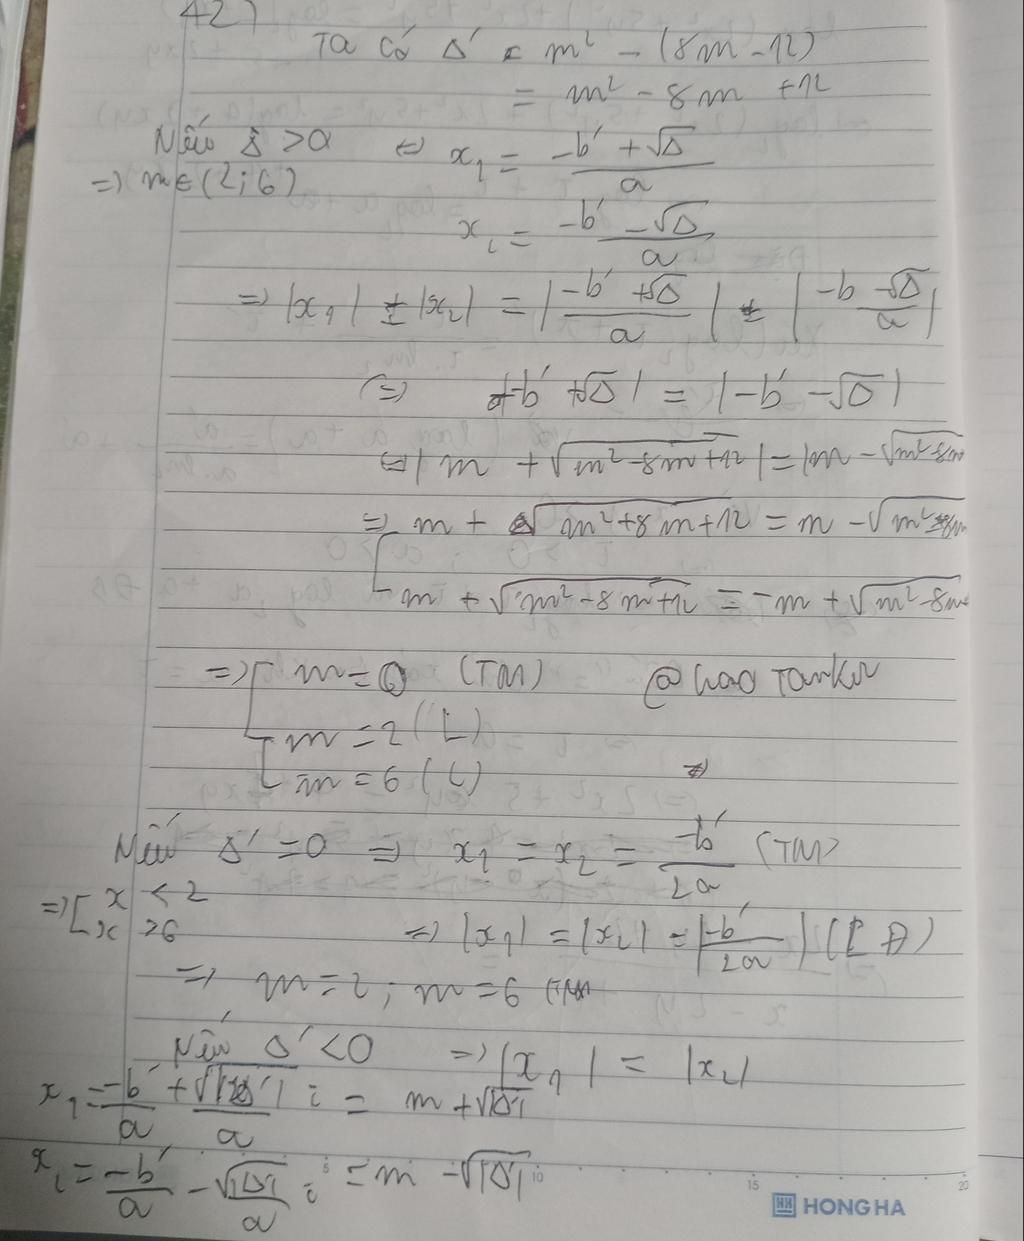 42)
Ta có Δ' = m² - (8m - 12)
= m² - 8m + 12
Nếu Δ > 0 ⇔ x₁ = (-b' + √Δ)/a
⇒ m ∈ (2; 6)
x₂ = (-b' - √Δ)/a
⇒ |x₁| = |x₂| = |(-b' + √Δ)/a| = |(-b - √Δ)/a|
⇔ |-b' + √Δ| = |-b' - √Δ|
⇔ |m + √(m² - 8m + 12)| = |m - √(m² - 8m
⇒ [ m + √(m² + 8m + 12) = m - √(m² - 8m
m + √(m² - 8m + 12) = -m + √(m² - 8m
⇒ [ m = 0 (TM) @haotonkv
m = 2 (L)
m = 6 (L)
Nếu Δ' = 0 ⇒ x₁ = x₂ = -b'/2a (TM)
⇒ [ x < 2
x > 6 ⇒ |x₁| = |x₂| = |-b'/2a|
⇒ m = 2; m = 6 (TM)
Nếu Δ' < 0 ⇒ |x₁| = |x₂|
x₁ = -b'/a + √|Δ'|/a i = m + √|Δ'|
x₂ = -b'/a - √|Δ'|/a i = m - √|Δ'|
5 10 15 20
HH HONG HA